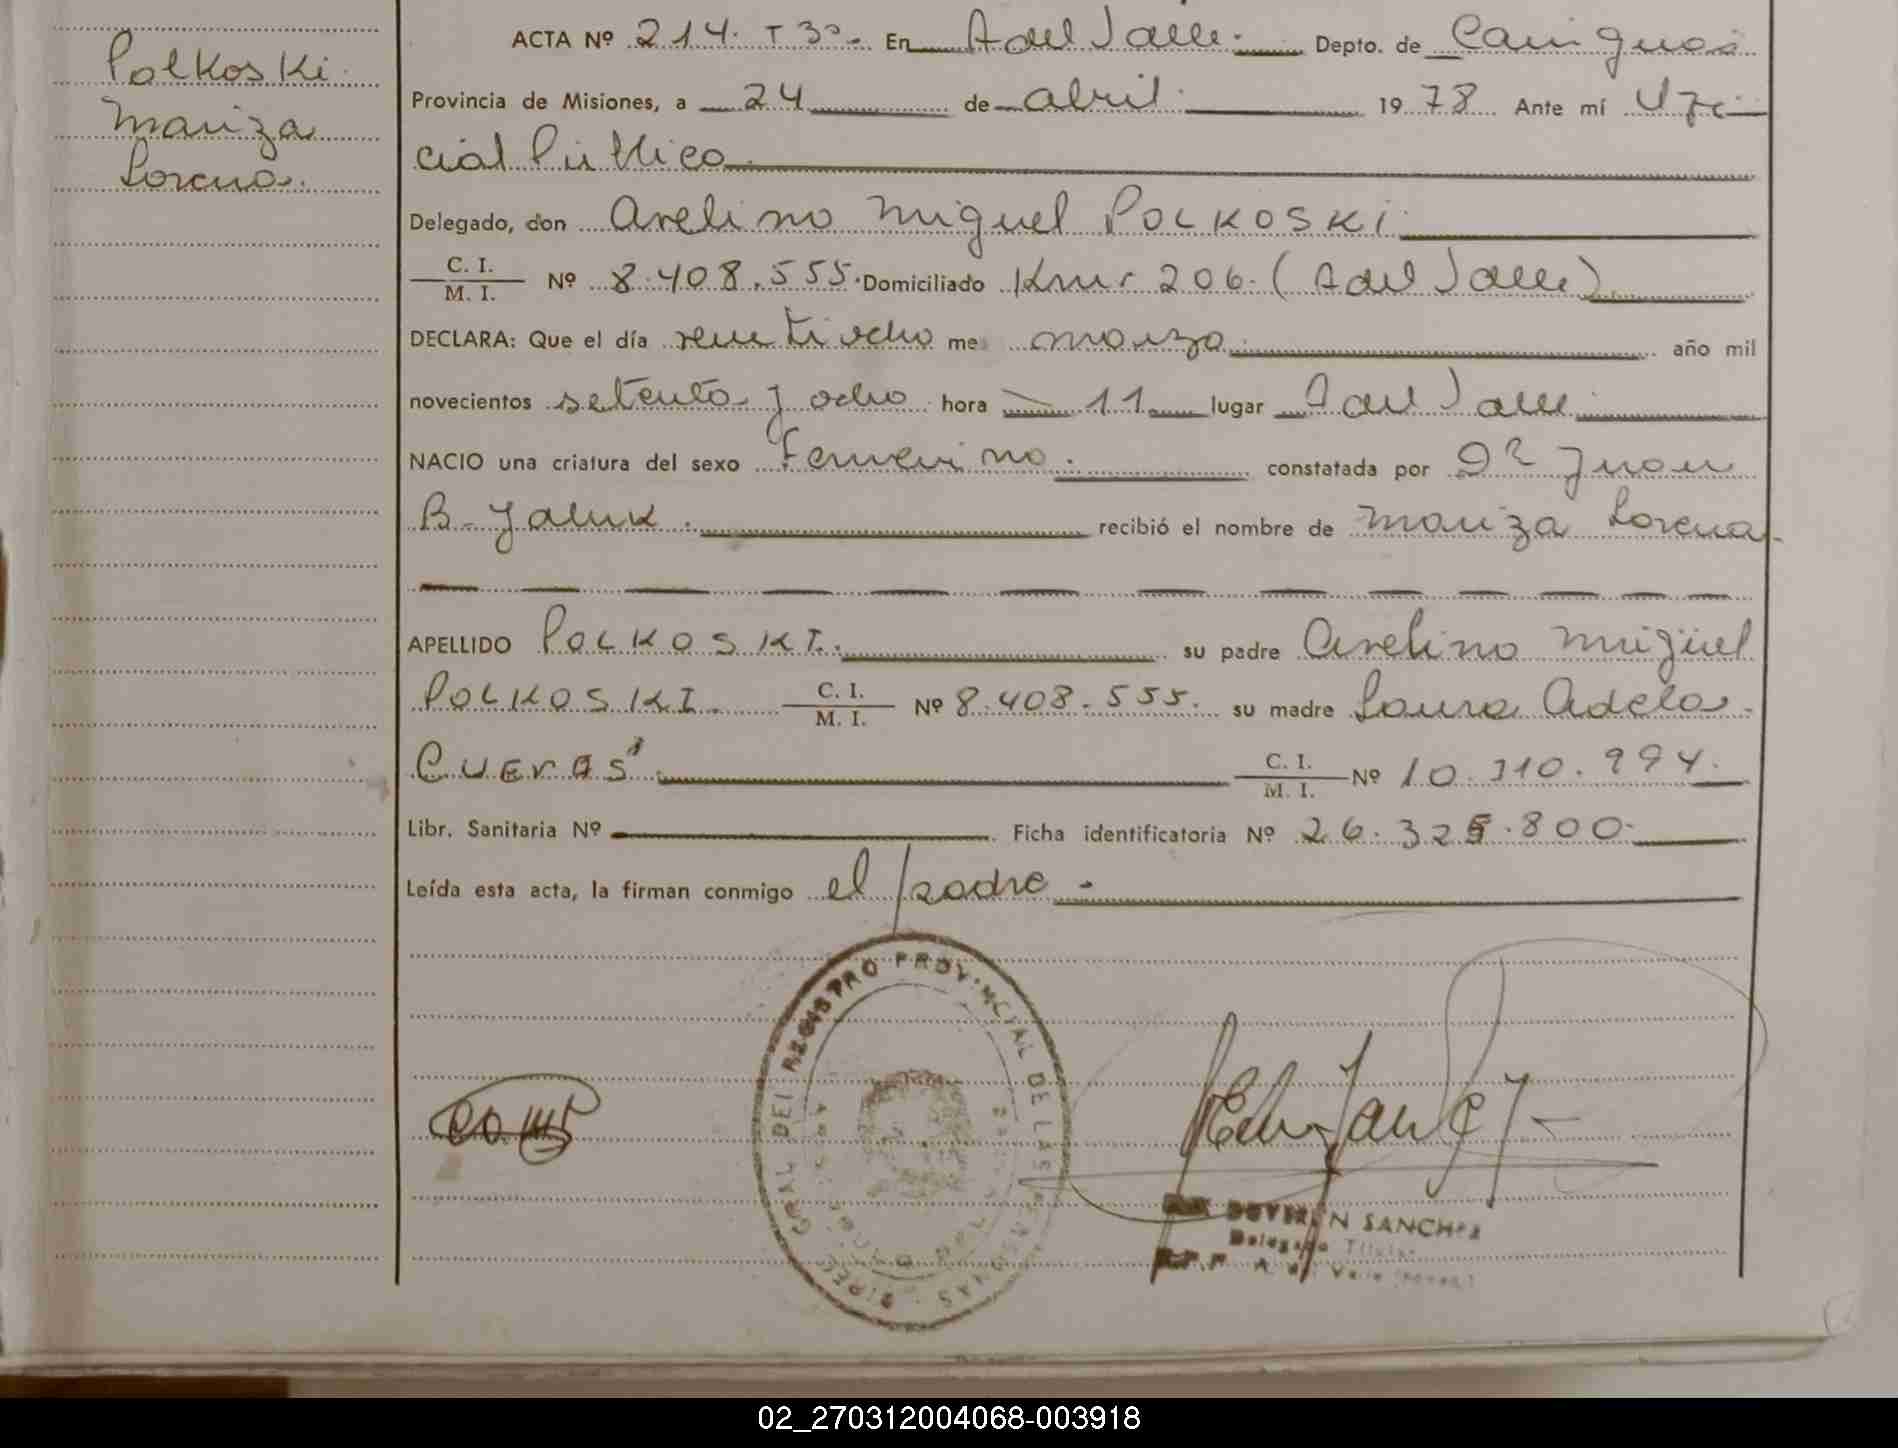 Polkoski
Mariza
Lorena.
ACTA Nº 214. T 3º. En A del Valle. Depto. de Cainguas
Provincia de Misiones, a 24 de abril. 1978 Ante mí Ofi-
cial Público.
Delegado, don Avelino Miguel POLKOSKI.
C. I. / M. I. Nº 8.408.555. Domiciliado Km. 206. (A del Valle).
DECLARA: Que el día veintiocho me marzo. año mil
novecientos setenta y ocho. hora 11. lugar A del Valle
NACIO una criatura del sexo Femenino. constatada por Dr Juan
B. Yaluk. recibió el nombre de Mariza Lorena.
APELLIDO POLKOSKI. su padre Avelino Miguel
POLKOSKI. C. I. / M. I. Nº 8.408.555. su madre Laura Adela.
CUEVAS. C. I. / M. I. Nº 10.310.994.
Libr. Sanitaria Nº Ficha identificatoria Nº 26.325.800.
Leída esta acta, la firman conmigo el padre.
GRAL DEL REGISTRO PROVINCIAL DE LAS PERSONAS
SANCHEZ
Delegado Titular
02_270312004068-003918